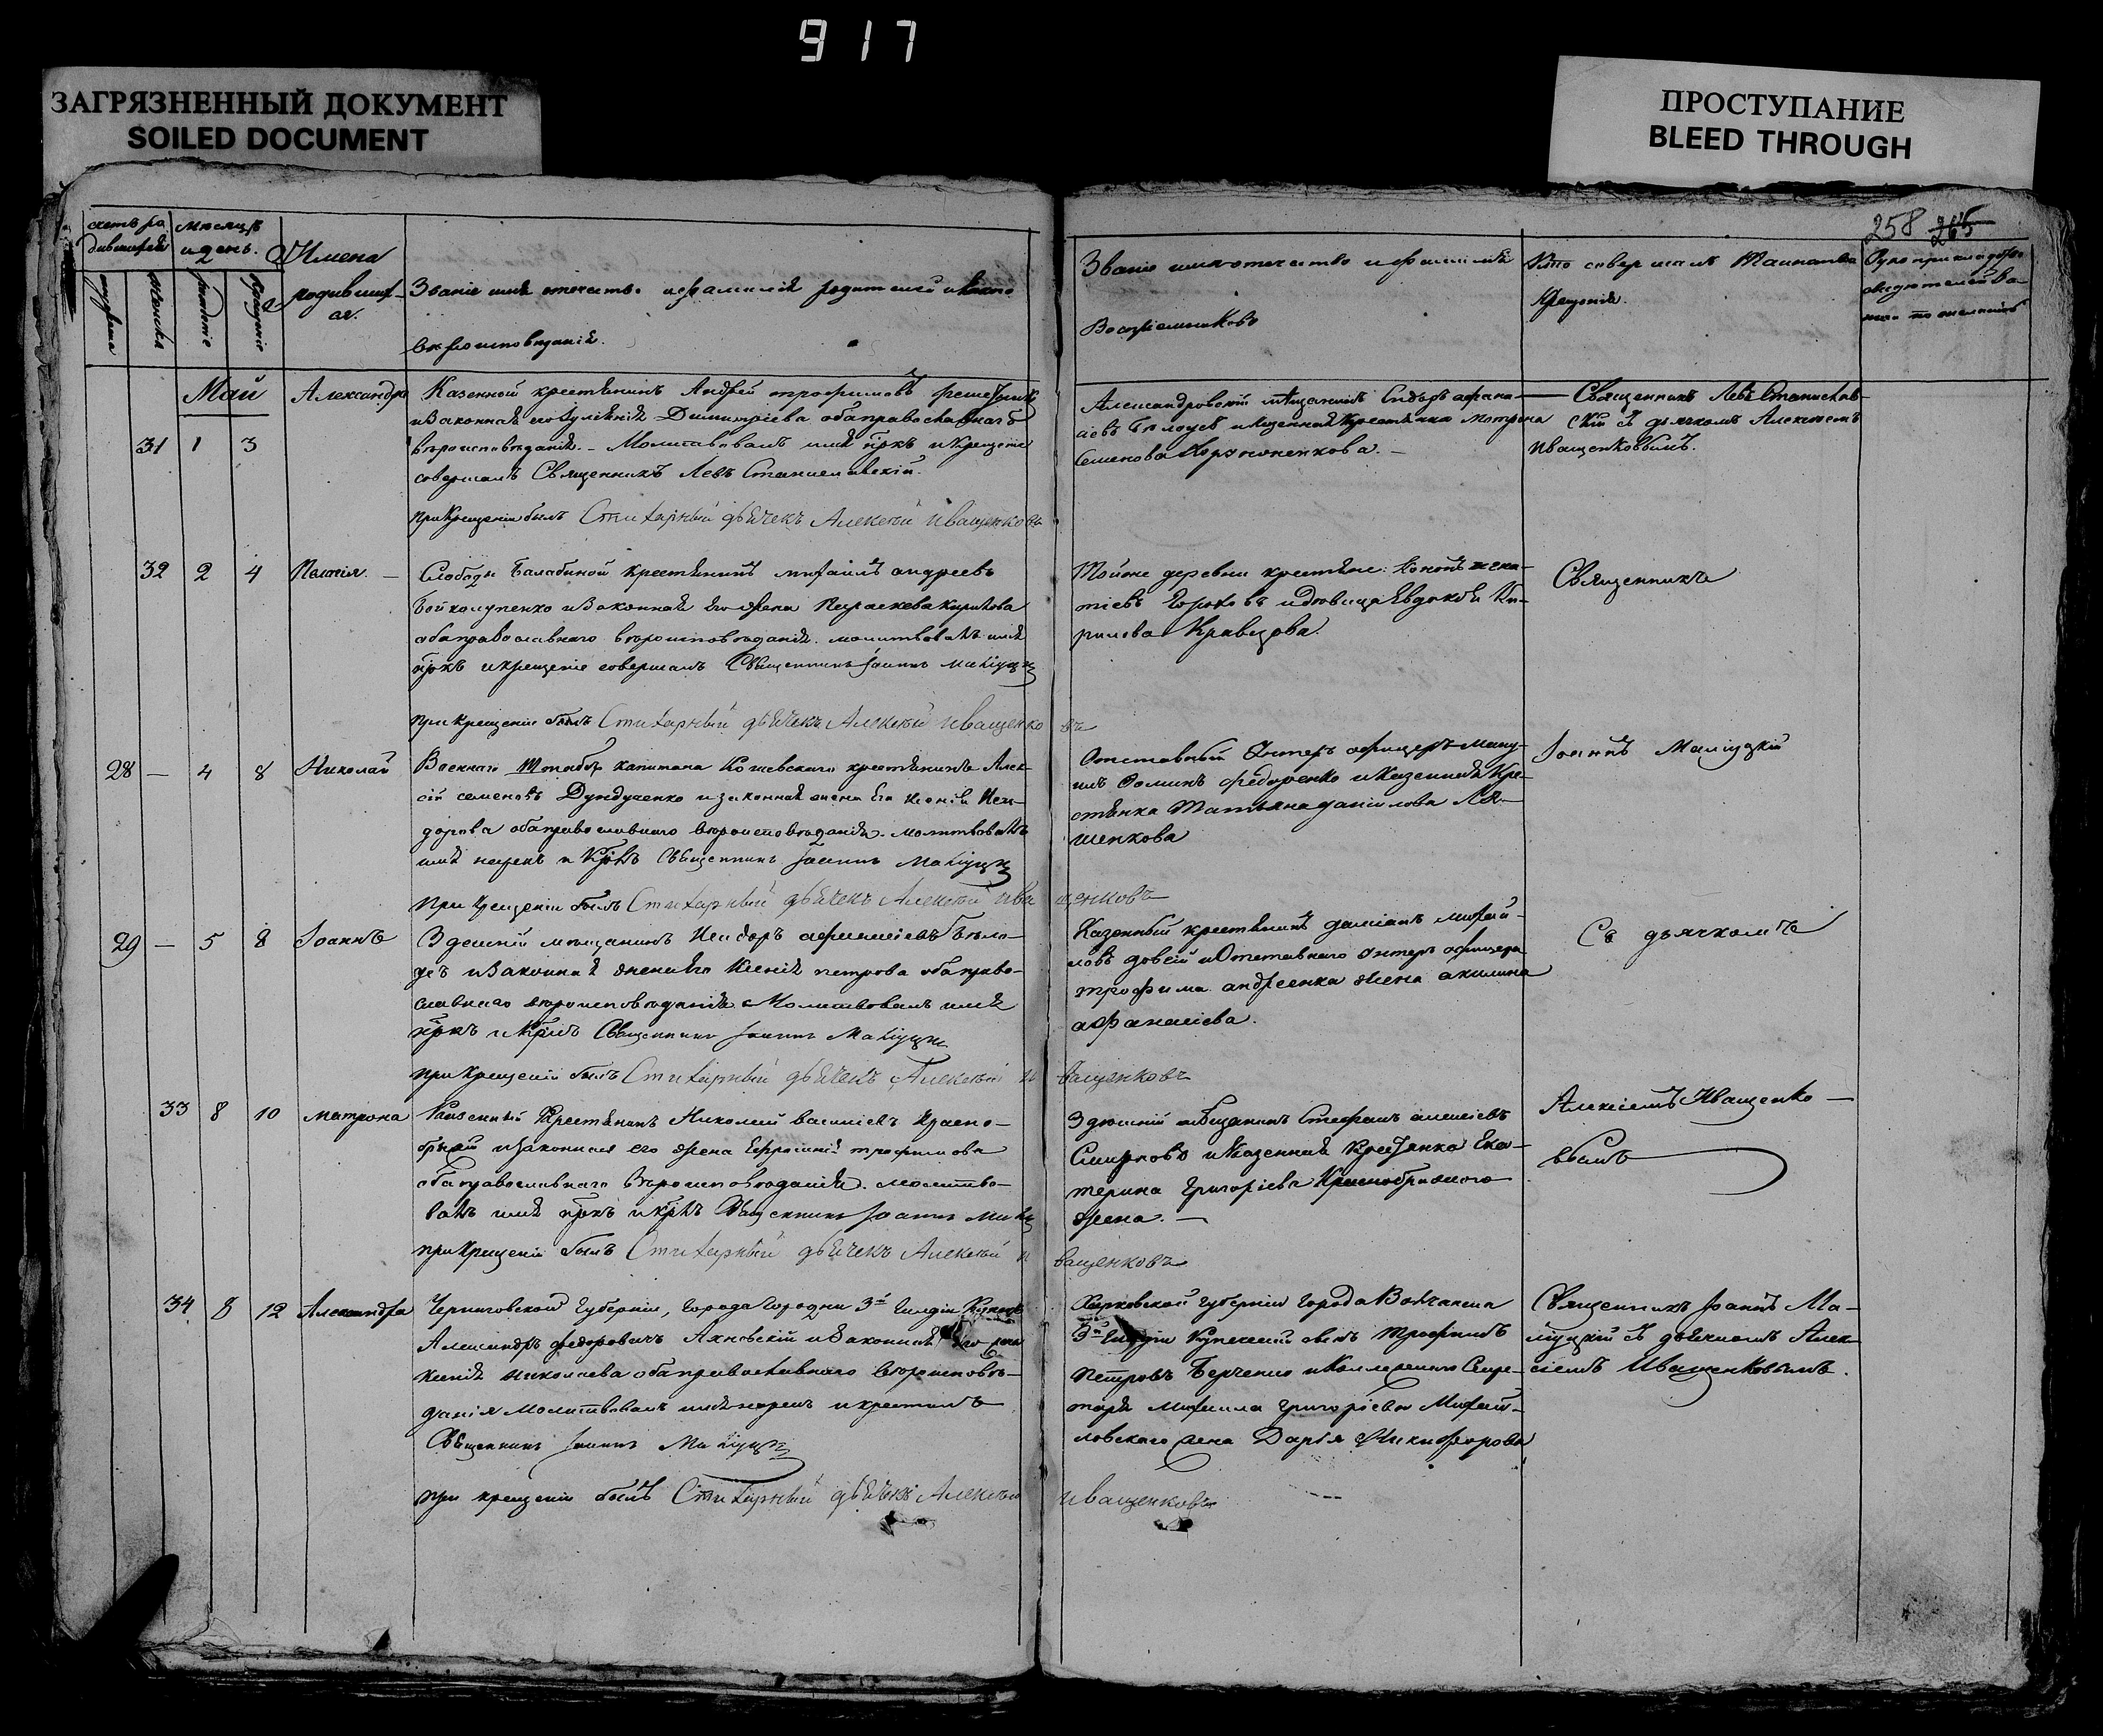 917
ЗАГРЯЗНЕННЫЙ ДОКУМЕНТ
SOILED DOCUMENT
ПРОСТУПАНИЕ
BLEED THROUGH
258 265
счетъ ро
дившихся
месяцъ
и день.
Имена
родивших-
ся.
мужеска
женска
рожденіе
крещеніе
Званіе имя отечество и фамилія родителей и какого
вероисповеданія.
Званіе имя отечество и фамилія
Воспріемниковъ
Кто совершалъ Таинство
Крещенія.
Май
31 1 3
Александра
Казенной крестьянинъ Андрей трофимовъ
и Законная его Димитріева оба православнаго
вероисповеданія. – Молитвовалъ имя нрекъ и Крещеніе
совершалъ Священникъ Левъ Станиславскій.
при Крещеніи былъ Стихарный дьячекъ Алексей Иващенковъ
Александровскій мещанинъ Сидоръ афана-
сіевъ Белоусъ и Казенная крестьянка Матрона
Семенова
Священникъ Левъ Станислав-
скій съ дьячкомъ Алексеемъ
Иващенковымъ.
32 2 4
Пелагія. –
Слободы Балабиной крестьянинъ михаилъ андреевъ
и Законная его жена Параскева Кирилова
оба православнаго вероисповеданія. молитвовалъ имя
нрекъ и крещеніе совершалъ Священникъ Іоаннъ Малицкій
при крещеніи былъ Стихарный дьячекъ Алексей Иващенковъ
Тойже деревни крестьяне: Кононъ игна-
тіевъ и вдовица Евдокія Ки-
рилова Кравцова.
Священникъ
28 – 4 8
Николай
Военнаго Штабсъ капитана Кошевскаго крестьянинъ Алек-
сій семеновъ Дундученко и законная жена его Ксенія Иси-
дорова оба православнаго вероисповеданія. молитвовалъ
имя нарекъ и Крстъ Священникъ Іоаннъ Малицкій
При Крещеніи былъ Стихарный дьячекъ Алексей Иващенковъ
Отставный Унтеръ офицеръ Ману-
илъ Фоминъ Федоренко и Казенная Кре-
стьянка Татьяна даниилова Ля-
шенкова
Іоаннъ Малицкій
29 – 5 8
Іоаннъ
Здешній мещанинъ Исидоръ афанасіевъ Бело-
усъ и Законная жена его Ксенія петрова оба право-
славнаго вероисповеданія Молитвовалъ имя
нрекъ и Крстилъ Священникъ Іоаннъ Малицкій
при Крещеніи былъ Стихарный дьячекъ Алексей Иващенковъ
Казенный крестьянинъ даміанъ михай-
ловъ довгій и Отставнаго Унтеръ офицера
трофима андреенка жена акилина
афанасіева.
Съ дьячкомъ
33 8 10
матрона
Казенный Крестьянинъ Николай василіевъ Красно-
и законная его жена Ефросинія трофимова
оба православнаго вероисповеданія. молитво-
валъ имя нрекъ и крстъ Священникъ Іоаннъ Малицкій
при Крещеніи былъ Стихарный дьячекъ Алексей Иващенковъ
Здешній мещанинъ Стефанъ алексіевъ
Смирновъ и Казенная Крестьянка Ека-
терина Григоріева Краснобрижнаго
жена. –
Алексіемъ Иващенко –
вымъ
34 8 12
Александра
Черниговской Губерніи, Города Городни 3й Гилдіи
Александръ федоровичъ Ахновскій и Законная его жена
Ксенія николаева оба православнаго вероисповѣ-
данія молитвовалъ имя нарекъ и крестилъ
Священникъ Іоаннъ Малицкій
при крещеніи былъ Стихарный дьячекъ Алексей Иващенковъ
Харковской Губерніи Города Волчанска
3й Гилдіи Купеческій сынъ Трофимъ
Петровъ Берченко и Коллежскаго Секре-
таря Михаила Григоріева Михай-
ловскаго жена Дарія Никифорова
Священникъ Іоаннъ Ма-
лицкій съ дьячкомъ Алек-
сіемъ Иващенковымъ.